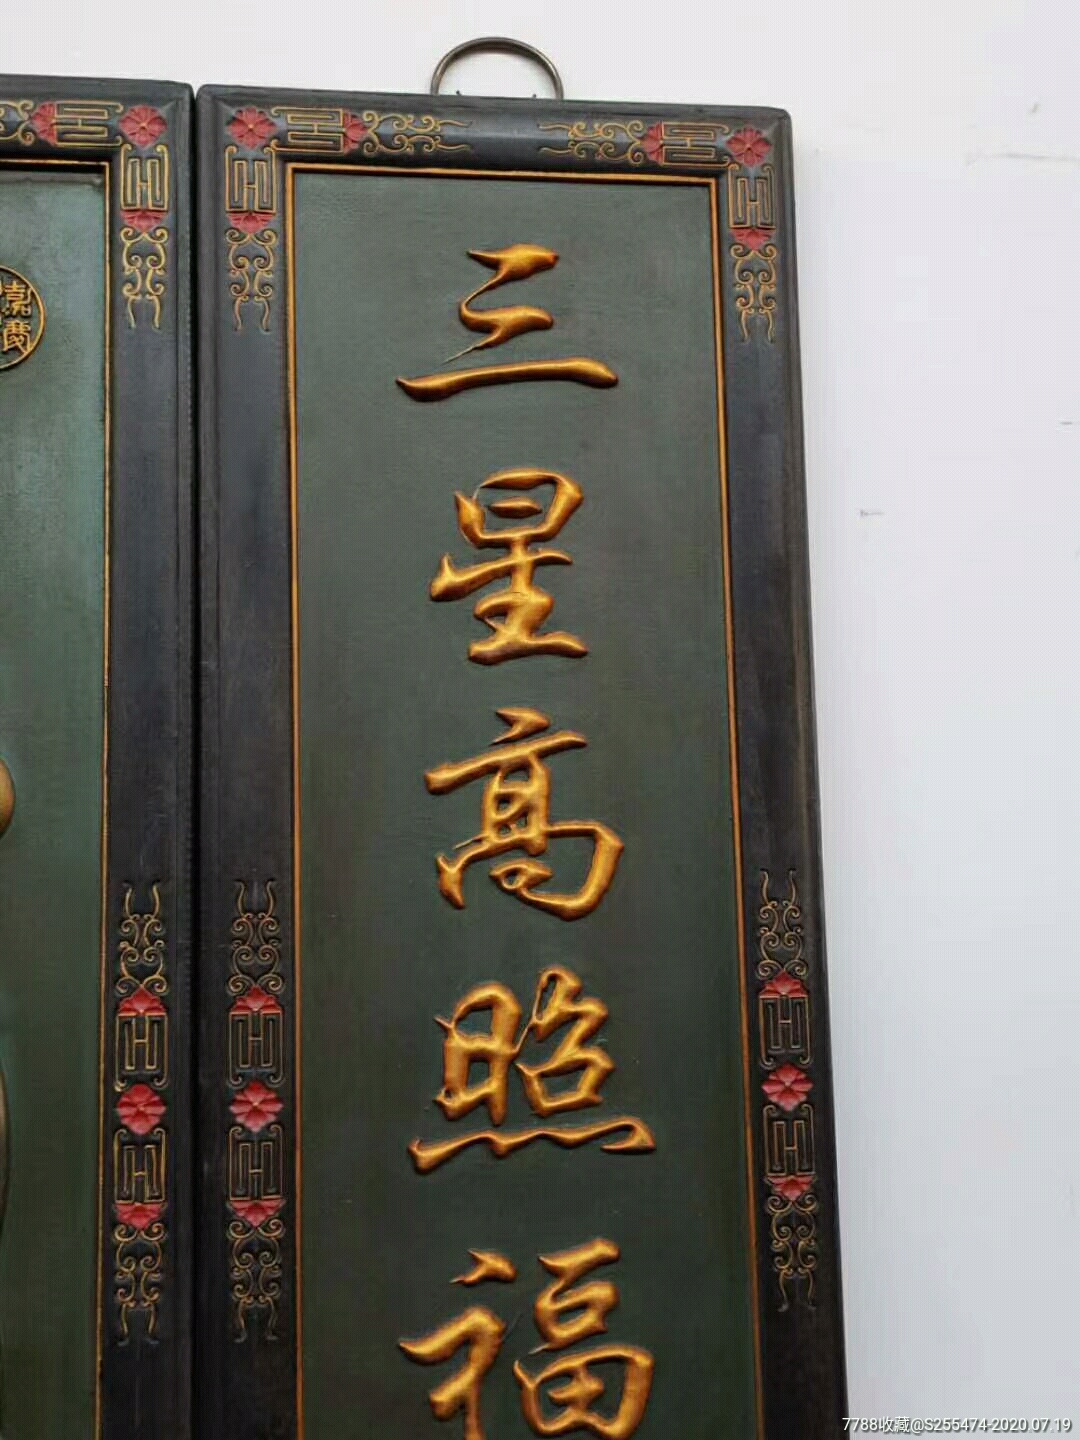 三星高照福
嘉慶
7788收藏@S255474-2020.07.19